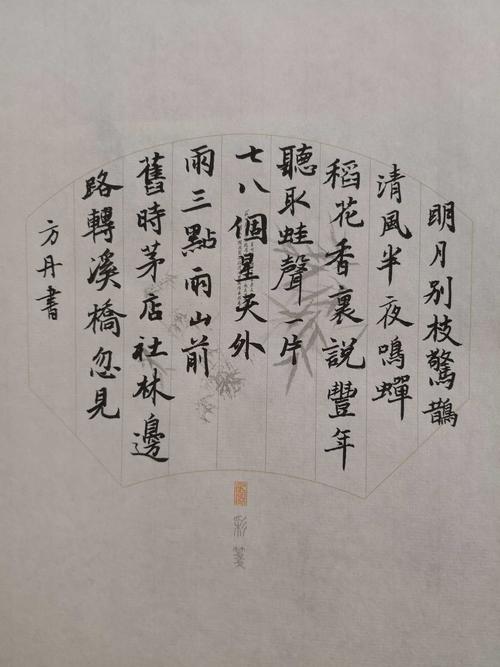 明月別枝驚鵲
清風半夜鳴蟬
稻花香裏説豐年
聽取蛙聲一片
七八個星天外
兩三點雨山前
舊時茅店社林邊
路轉溪橋忽見
方丹書
彩箋